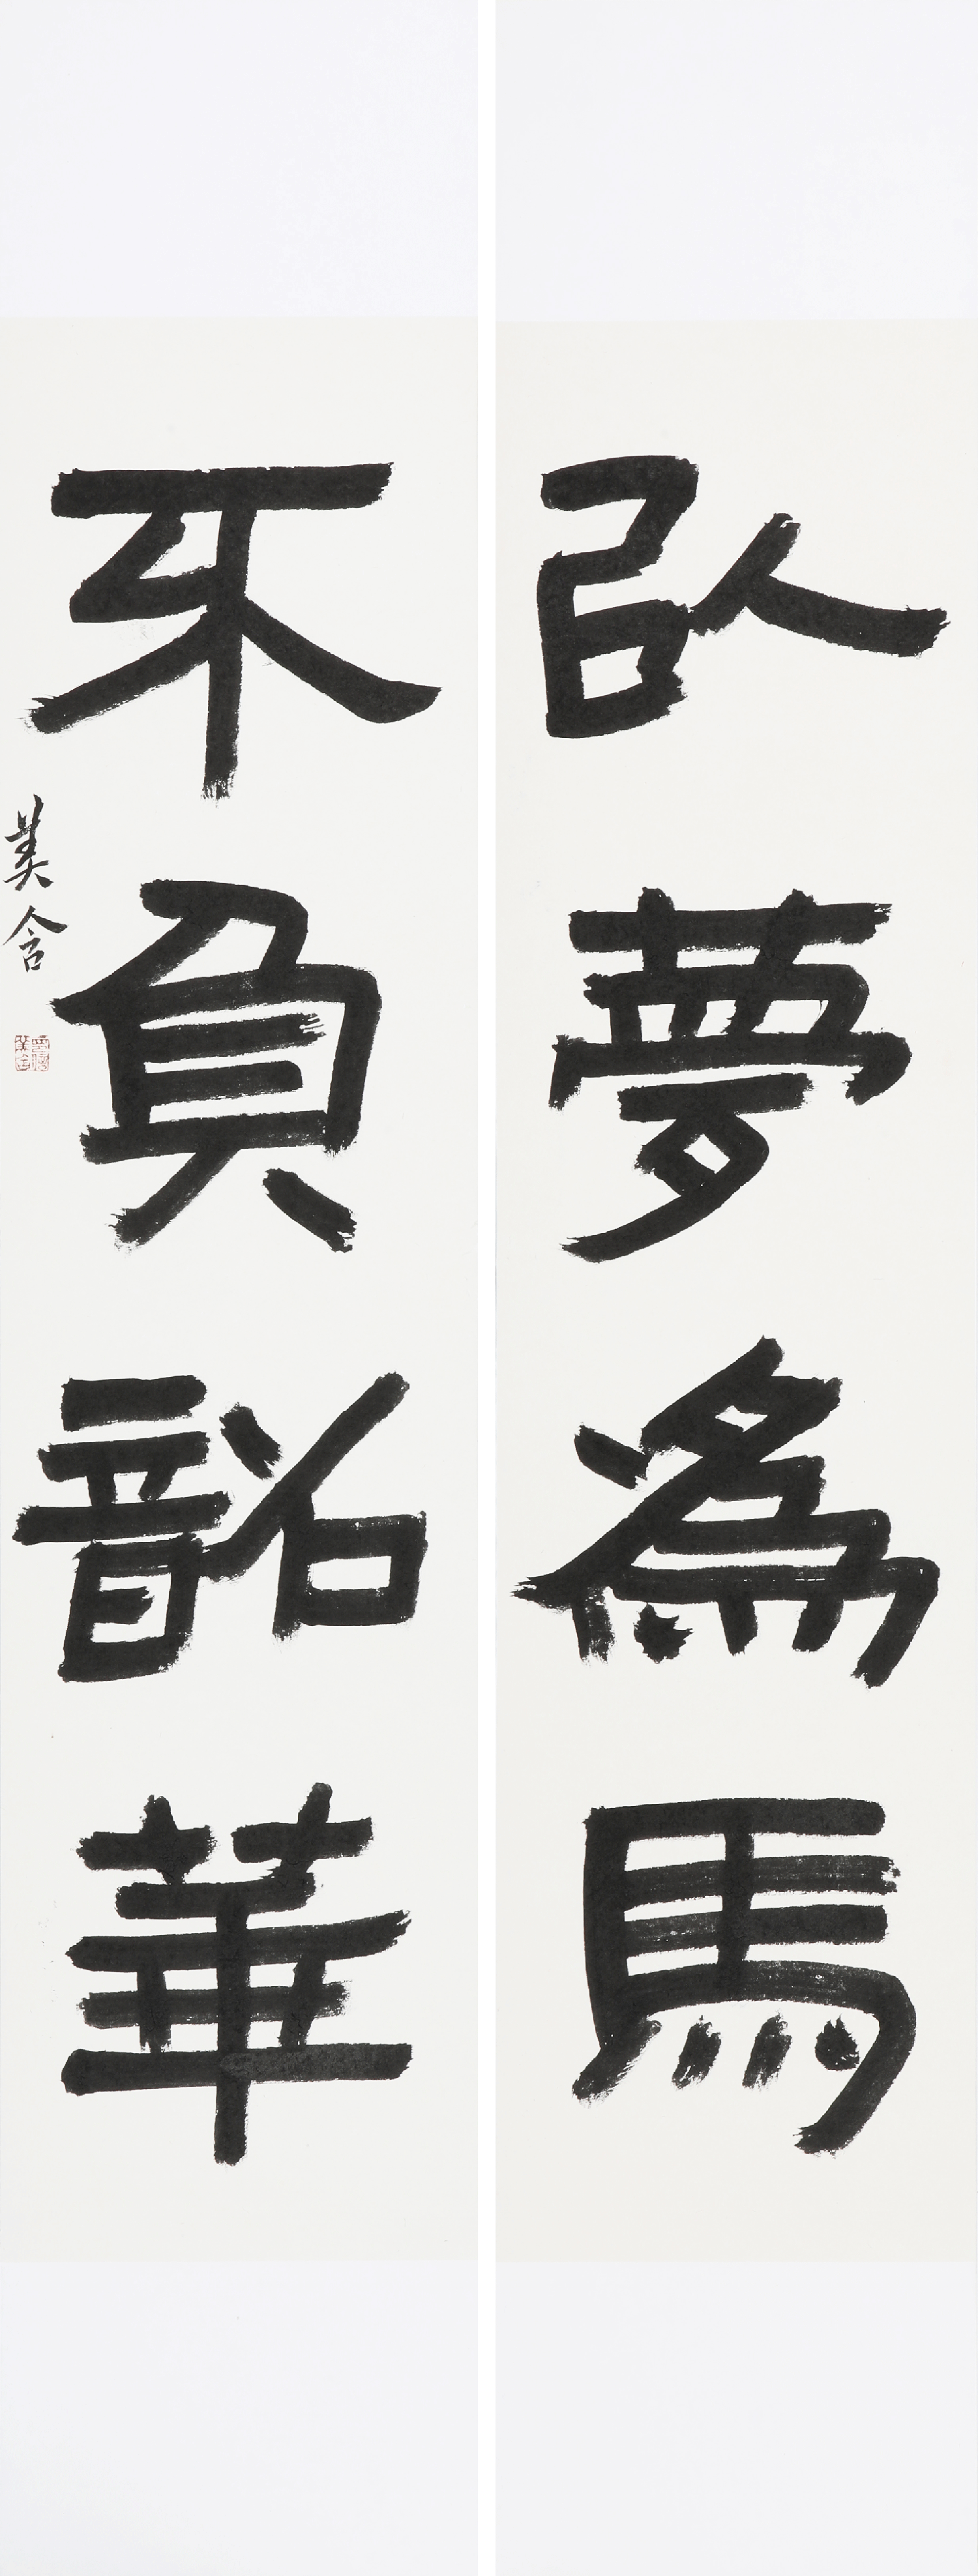 以夢為馬
不負韶華
美含